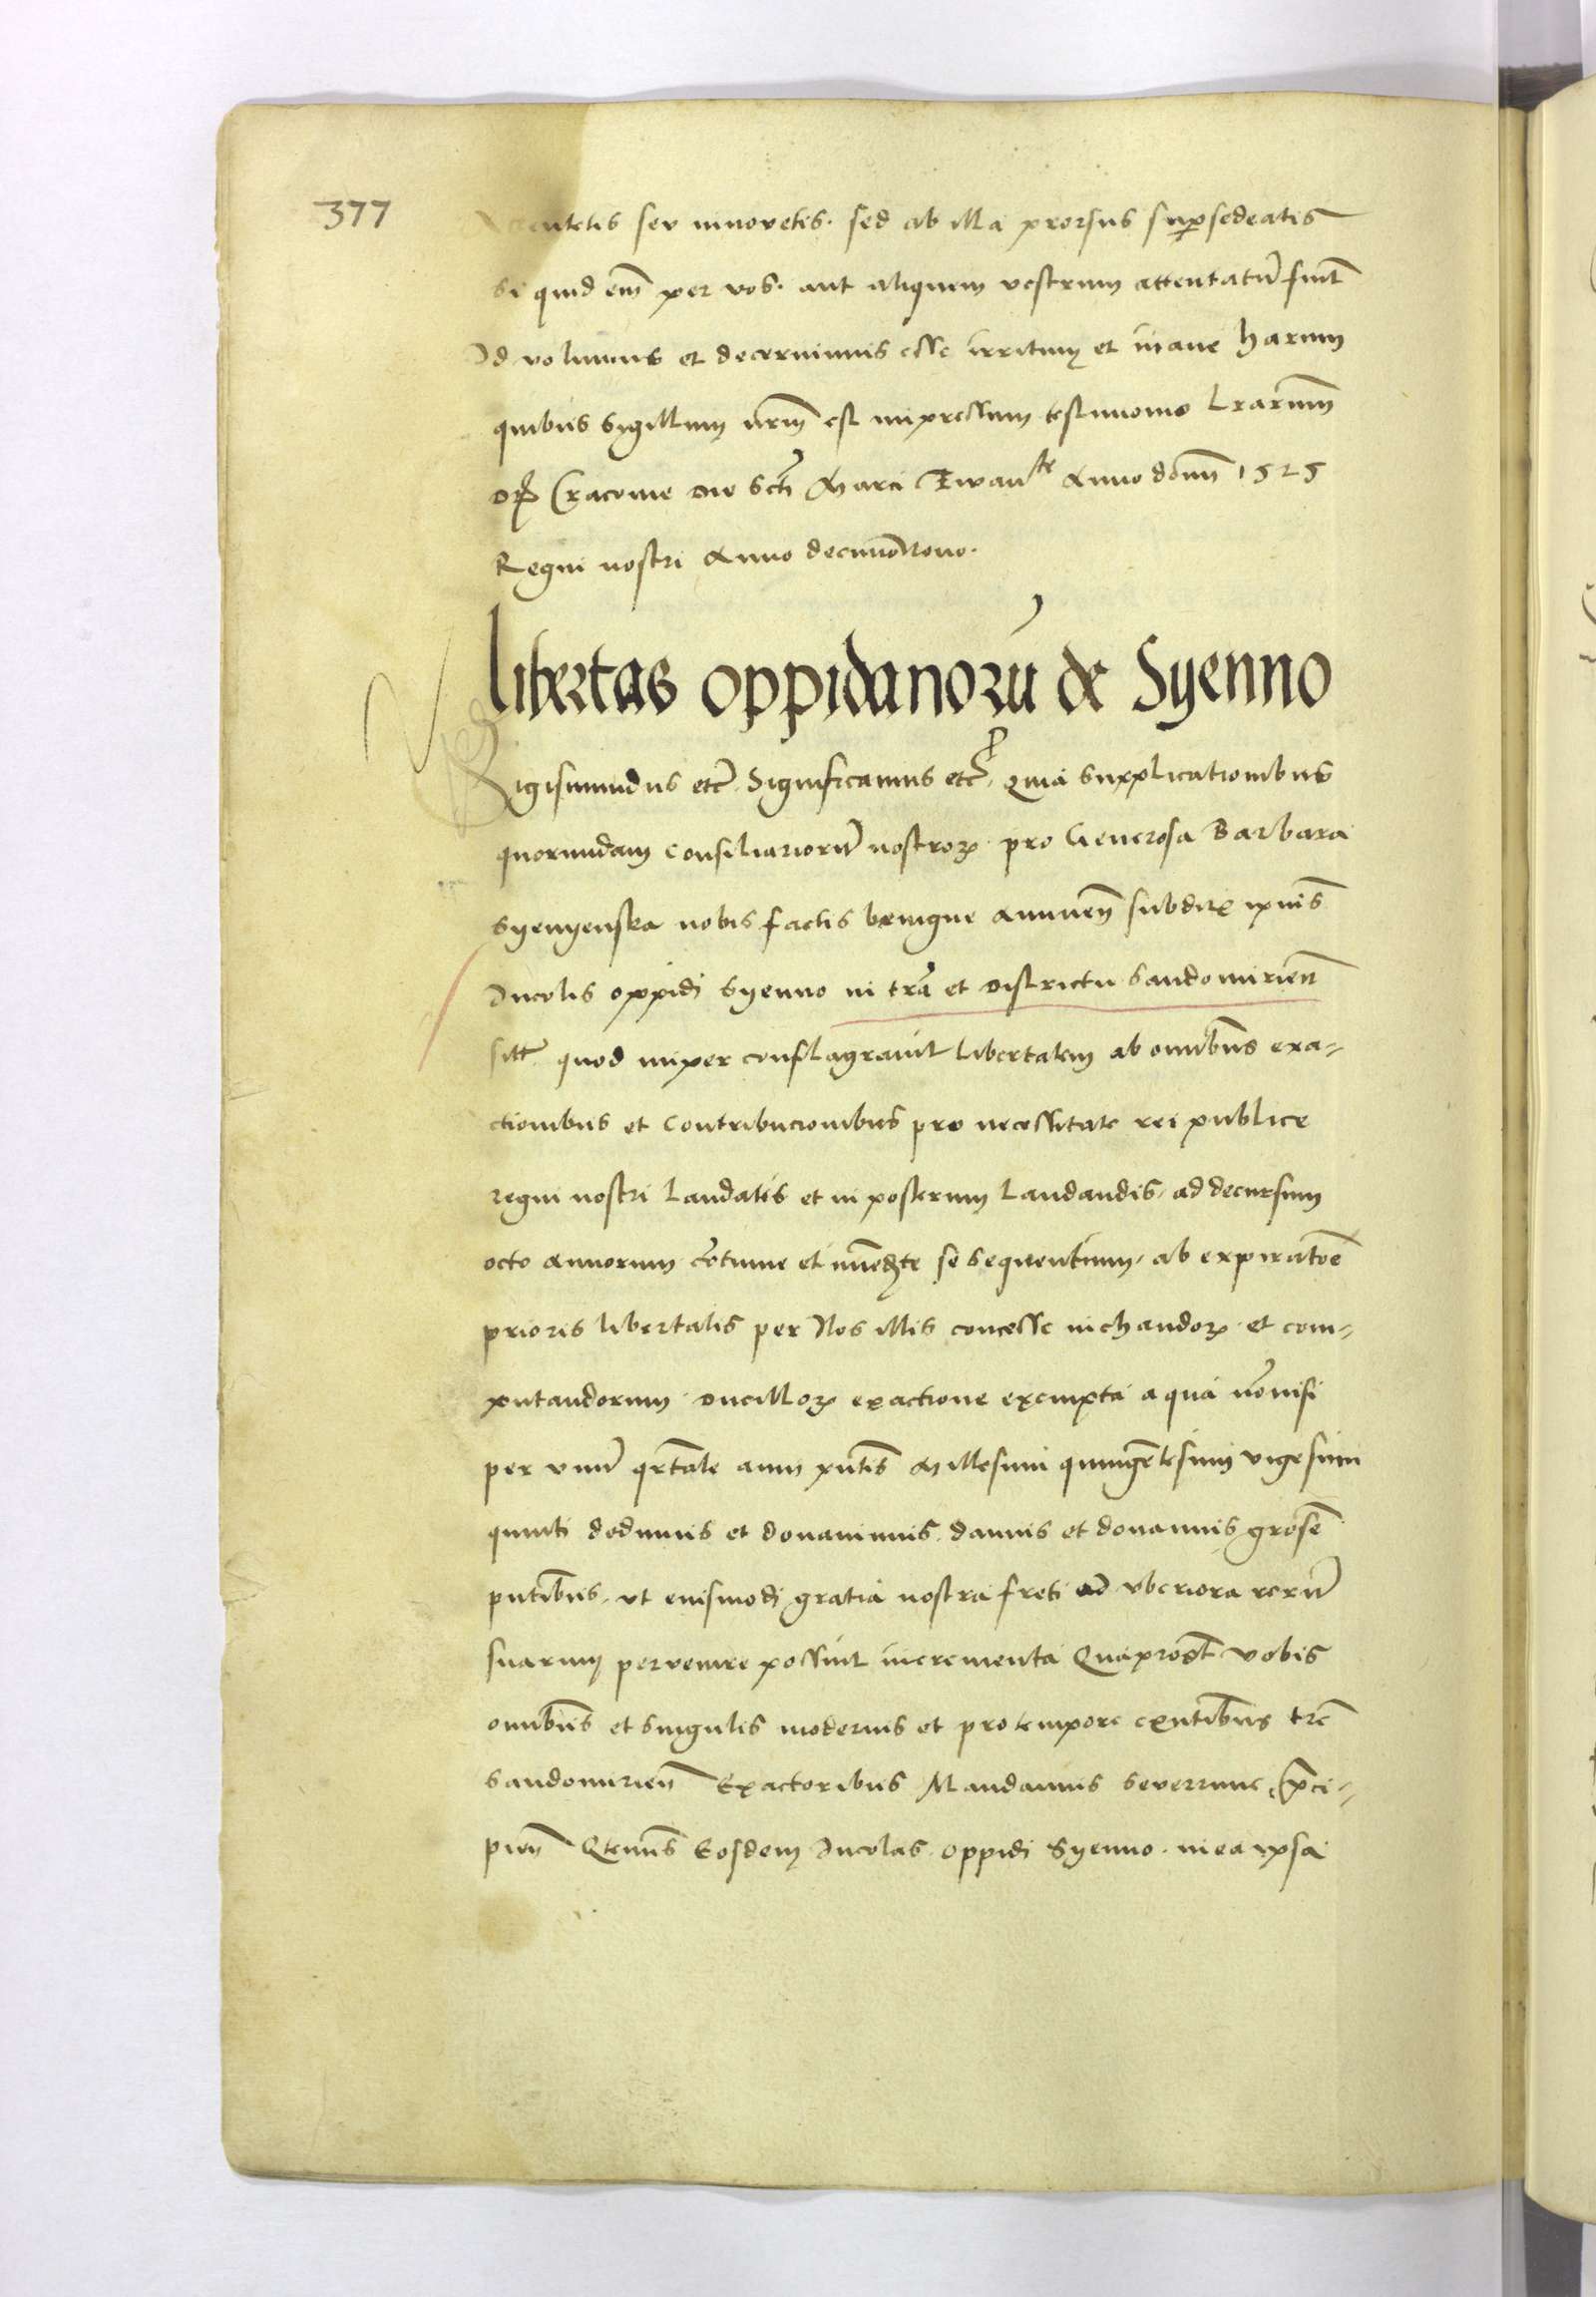 377
seu innovetis. sed ab illa prorsus supersedeatis
Si quid em̄ per vos. aut aliquem vestrum attentatū fuīt
Id volumus et decernimus esse irritum et inane harum
quibus Sigillum nrm̄ est impressum testimonio Lrarum̄
Cracovie die Scti Marci Ewan^te Anno domī 1525
Regni nostri Anno decimonono.
libertas oppidanorū de Syenno
Sigismundus etc̄. Significamus etc̄. Quia supplicationibus
quorundam Consiliariorū nostroꝝ pro Generosa Barbara
Syenyenska nobis factis benigne annuen̄ subdit
Incolis oppidi Syenno in trā et districtu Sandomirien̄
sitt̄ quod nuper conflagravit libertatem ab omībus exa-
ctionibus et Contribucionibus pro necessitate rei publice
regni nostri Laudatis et in posterum Laudandis. ad decursum
octo annorum se sequentium. ab expiratōe
prioris libertatis per Nos illis concesse inchandoꝝ et com-
putandorum. ducilloꝝ exactione exempta a qua nōnisi
per unū qrtale anni pn̄tis Millesimi quingētesimi vigesimi
quinti dedimus et donavimus. damus et donamus grose
pn̄tibus. ut eiusmodi gratia nostra freti ad uberiora rerū
suarum pervenire possint incrementa Quaprot̄ vobis
omībus et singulis modernis et pro tempore exn̄tibus trē
Sandomirien̄ Exactoribus Mandamus severinne
pien̄ Qtenus Eosdem Incolas oppidi Syenno. in ea ipsa